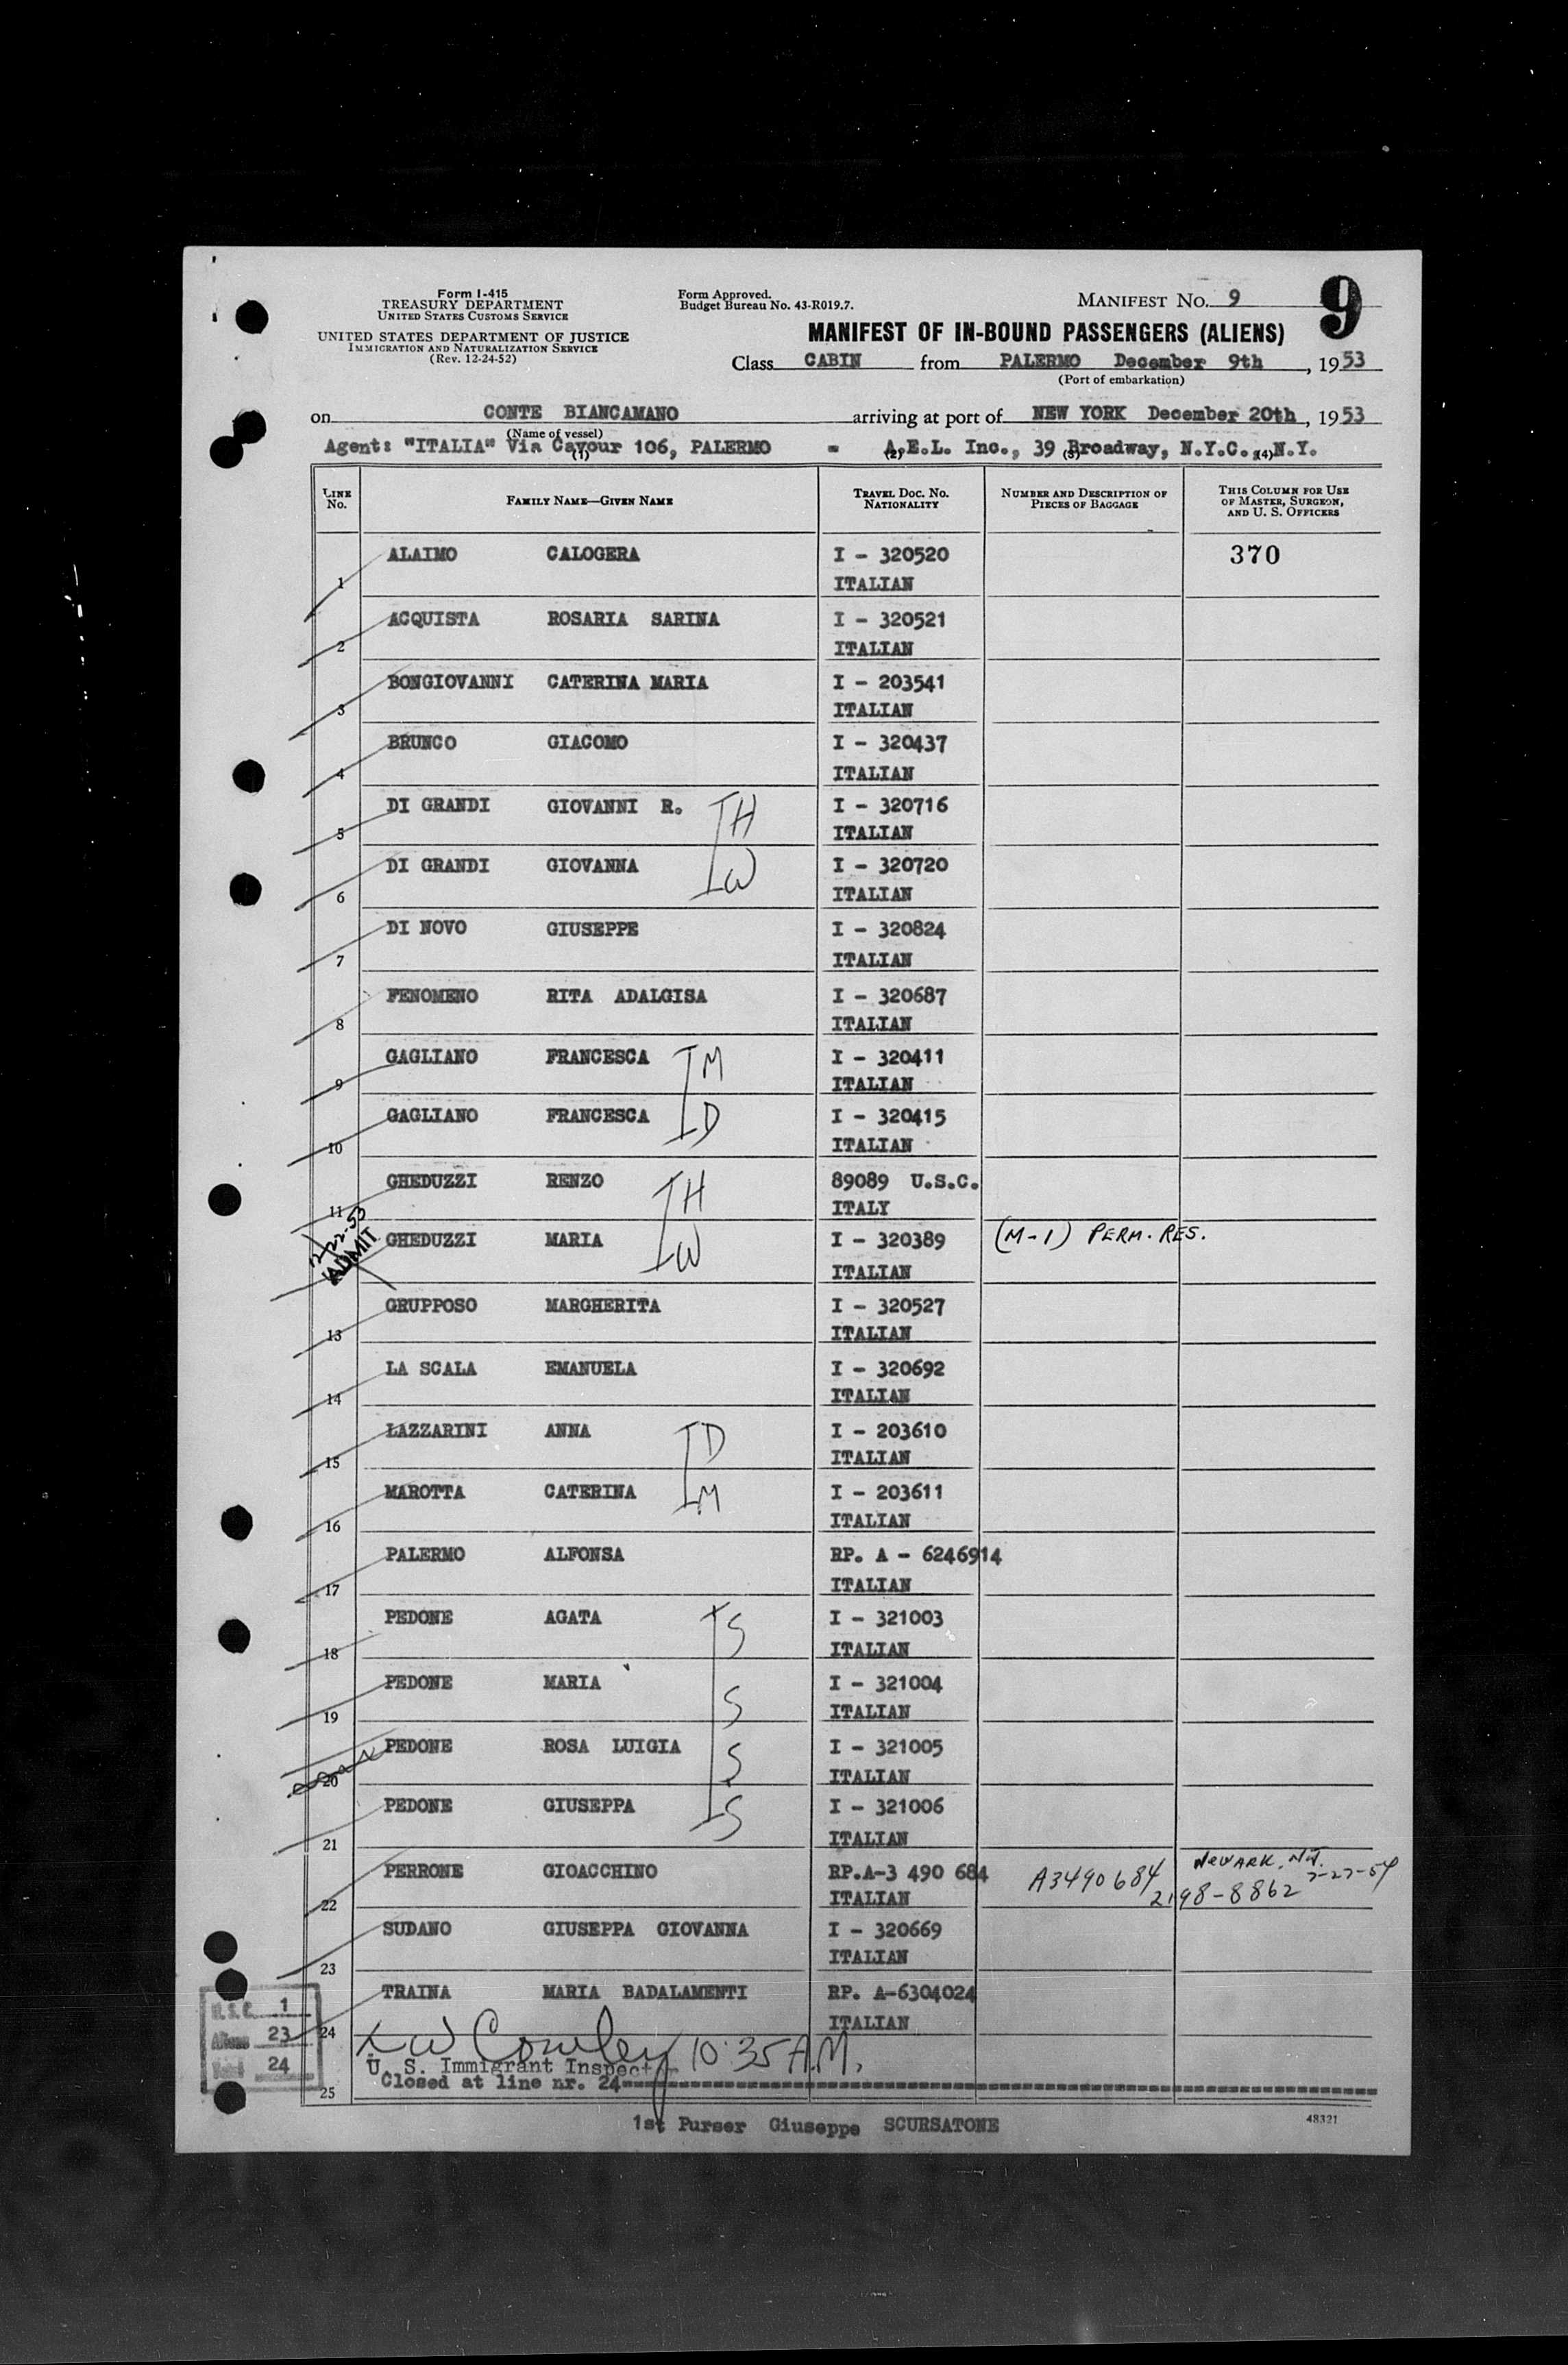 Form I-415
TREASURY DEPARTMENT
UNITED STATES CUSTOMS SERVICE
UNITED STATES DEPARTMENT OF JUSTICE
IMMIGRATION AND NATURALIZATION SERVICE
(Rev. 12-24-52)
Form Approved.
Budget Bureau No. 43-R019.7.
MANIFEST NO. 9
9
MANIFEST OF IN-BOUND PASSENGERS (ALIENS)
Class CABIN from PALERMO December 9th, 1953
(Port of embarkation)
on CONTE BIANCAMANO arriving at port of NEW YORK December 20th, 1953
(Name of vessel)
Agent: "ITALIA" Via Cavour 106, PALERMO - A.E.L. Inc., 39 Broadway, N.Y.C., N.Y.
(1) (2) (3) (4)
LINE No. FAMILY NAME—GIVEN NAME TRAVEL DOC. NO. NATIONALITY NUMBER AND DESCRIPTION OF PIECES OF BAGGAGE THIS COLUMN FOR USE OF MASTER, SURGEON, AND U. S. OFFICERS
ALAIMO CALOGERA I - 320520 370
1 ITALIAN
ACQUISTA ROSARIA SARINA I - 320521
2 ITALIAN
BONGIOVANNI CATERINA MARIA I - 203541
3 ITALIAN
BRUNCO GIACOMO I - 320437
4 ITALIAN
DI GRANDI GIOVANNI R. H I - 320716
5 ITALIAN
DI GRANDI GIOVANNA W I - 320720
6 ITALIAN
DI NOVO GIUSEPPE I - 320824
7 ITALIAN
FENOMENO RITA ADALGISA I - 320687
8 ITALIAN
GAGLIANO FRANCESCA M I - 320411
9 ITALIAN
GAGLIANO FRANCESCA D I - 320415
10 ITALIAN
GHEDUZZI RENZO H 89089 U.S.C.
11 ITALY
GHEDUZZI MARIA W I - 320389 (M-1) PERM. RES.
12-22-53 ADMIT ITALIAN
GRUPPOSO MARGHERITA I - 320527
13 ITALIAN
LA SCALA EMANUELA I - 320692
14 ITALIAN
LAZZARINI ANNA D I - 203610
15 ITALIAN
MAROTTA CATERINA M I - 203611
16 ITALIAN
PALERMO ALFONSA RP. A - 6246914
17 ITALIAN
PEDONE AGATA S I - 321003
18 ITALIAN
PEDONE MARIA S I - 321004
19 ITALIAN
PEDONE ROSA LUIGIA S I - 321005
20 ITALIAN
PEDONE GIUSEPPA S I - 321006
21 ITALIAN
PERRONE GIOACCHINO RP.A-3 490 684 A3490684 NEWARK, N.J.
22 ITALIAN 2198-8862
SUDANO GIUSEPPA GIOVANNA I - 320669
23 ITALIAN
TRAINA MARIA BADALAMENTI RP. A-6304024
24 ITALIAN
U.S.C. 1
Aliens 23
Total 24
Cowley 10:35 A.M.
U. S. Immigrant Inspector
25 Closed at line nr. 24
1st Purser Giuseppe SCURSATONE
48321